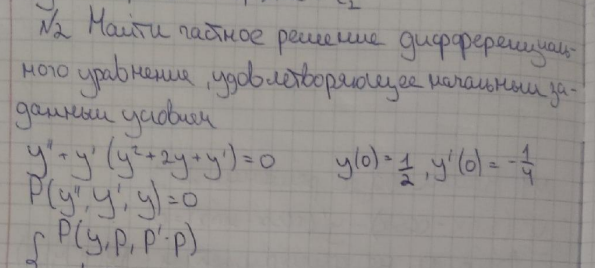 N2 Найти частное решение дифференциаль-
ного уравнения, удовлетворяющее начальным за-
данным условием
y'' + y' (y² + 2y + y') = 0 y(0) = 1/2, y'(0) = -1/4
P(y'', y', y) = 0
{ P(y, p, p'·p)